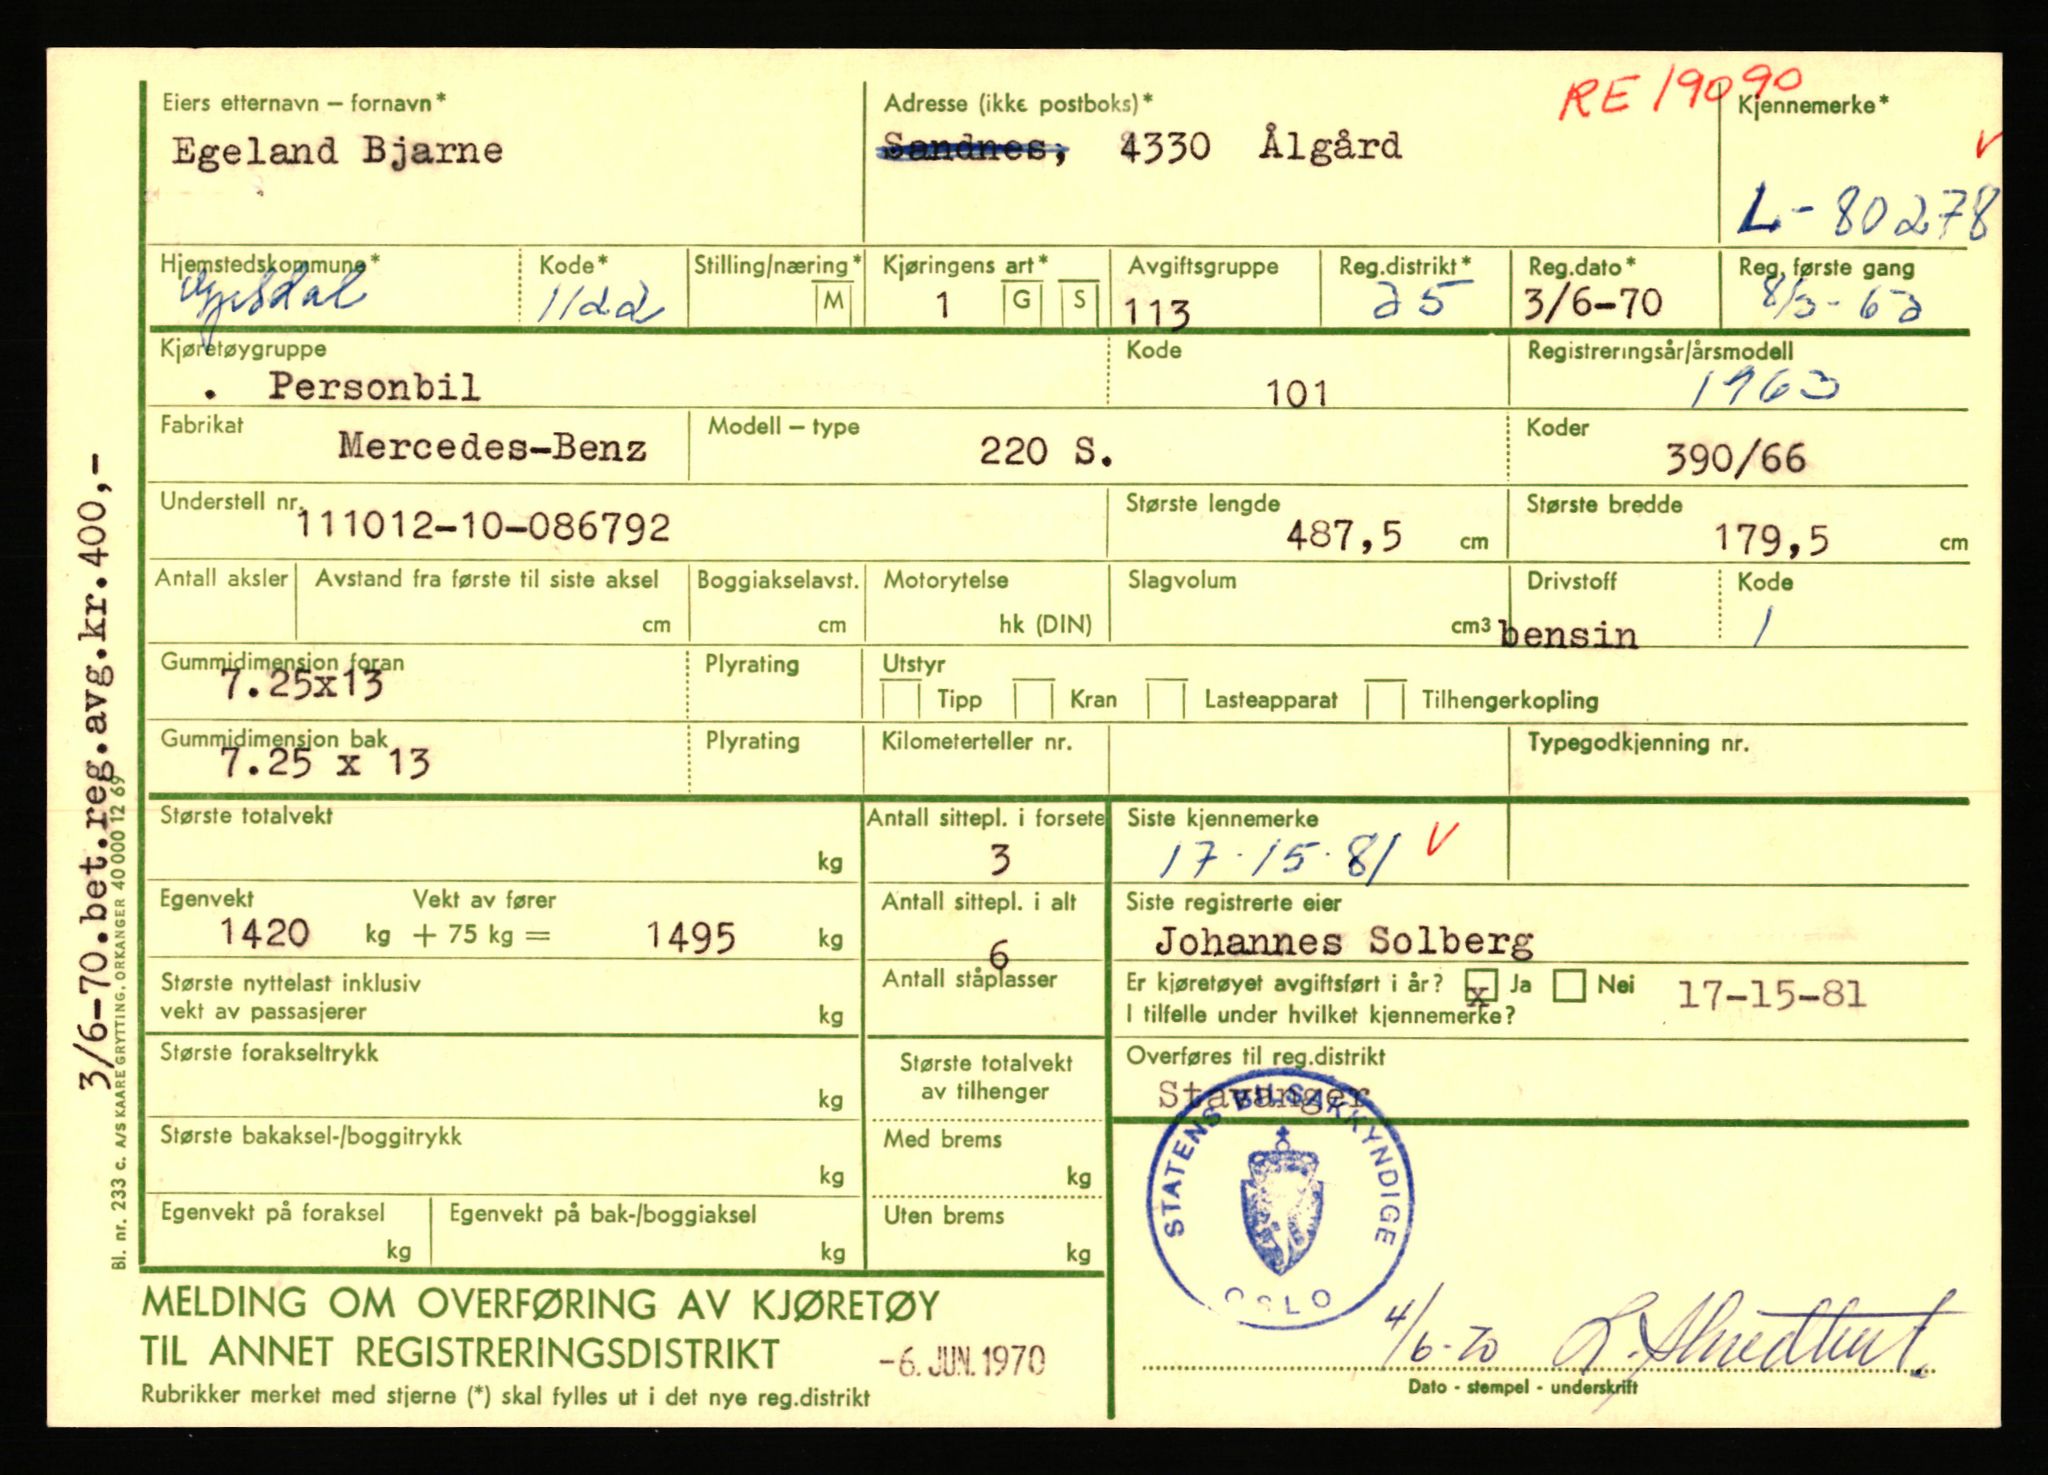 RE 19090
Eiers etternavn – fornavn* Adresse (ikke postboks)* Kjennemerke*
Egeland Bjarne Sandnes, 4330 Ålgård V
L-80278
Hjemstedskommune* Kode* Stilling/næring* Kjøringens art* Avgiftsgruppe Reg.distrikt* Reg.dato* Reg. første gang
Gjesdal 1122 M 1 G S 113 25 3/6-70
Kjøretøygruppe Kode Registreringsår/årsmodell
. Personbil 101 1963
Fabrikat Modell – type Koder
Mercedes-Benz 220 S. 390/66
Understell nr. Største lengde Største bredde
111012-10-086792 487,5 cm 179,5 cm
Antall aksler Avstand fra første til siste aksel Boggiakselavst. Motorytelse Slagvolum Drivstoff Kode
cm cm hk (DIN) cm3 bensin 1
Gummidimensjon foran Plyrating Utstyr
7.25x13 Tipp Kran Lasteapparat Tilhengerkopling
Gummidimensjon bak Plyrating Kilometerteller nr. Typegodkjenning nr.
7.25 x 13
Største totalvekt Antall sittepl. i forsete Siste kjennemerke
kg 3 17-15-81 V
Egenvekt Vekt av fører Antall sittepl. i alt Siste registrerte eier
1420 kg + 75 kg = 1495 kg 6 Johannes Solberg
Største nyttelast inklusiv Antall ståplasser Er kjøretøyet avgiftsført i år? x Ja Nei 17-15-81
vekt av passasjerer kg I tilfelle under hvilket kjennemerke?
Største forakseltrykk Største totalvekt Overføres til reg.distrikt
kg av tilhenger Stavanger
Største bakaksel-/boggitrykk Med brems
kg kg
Egenvekt på foraksel Egenvekt på bak-/boggiaksel Uten brems
kg kg kg
STATENS BILSAKKYNDIGE
OSLO
MELDING OM OVERFØRING AV KJØRETØY
TIL ANNET REGISTRERINGSDISTRIKT -6. JUN. 1970 4/6-70
Rubrikker merket med stjerne (*) skal fylles ut i det nye reg.distrikt Dato - stempel - underskrift
3/6-70.bet.reg.avg.kr.400,-
Bl. nr. 233 c. A/S KAARE GRYTTING, ORKANGER 40 000 12 69